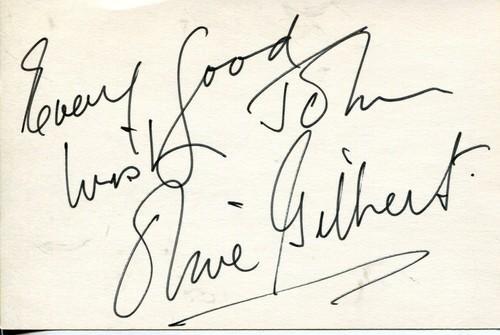 Every Good
wish John
Olive Gilbert.